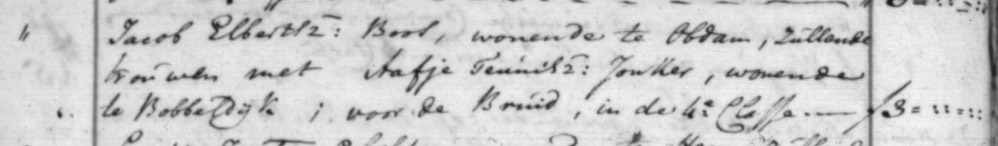 " Jacob Elbertsz: Bool, wonende te Obdam, zullende
trouwen met Aafje Teunisz: Jonker, wonende
te Bobbeldijk; voor de Bruid, in de 4e Classe — f 3 = :: = ::